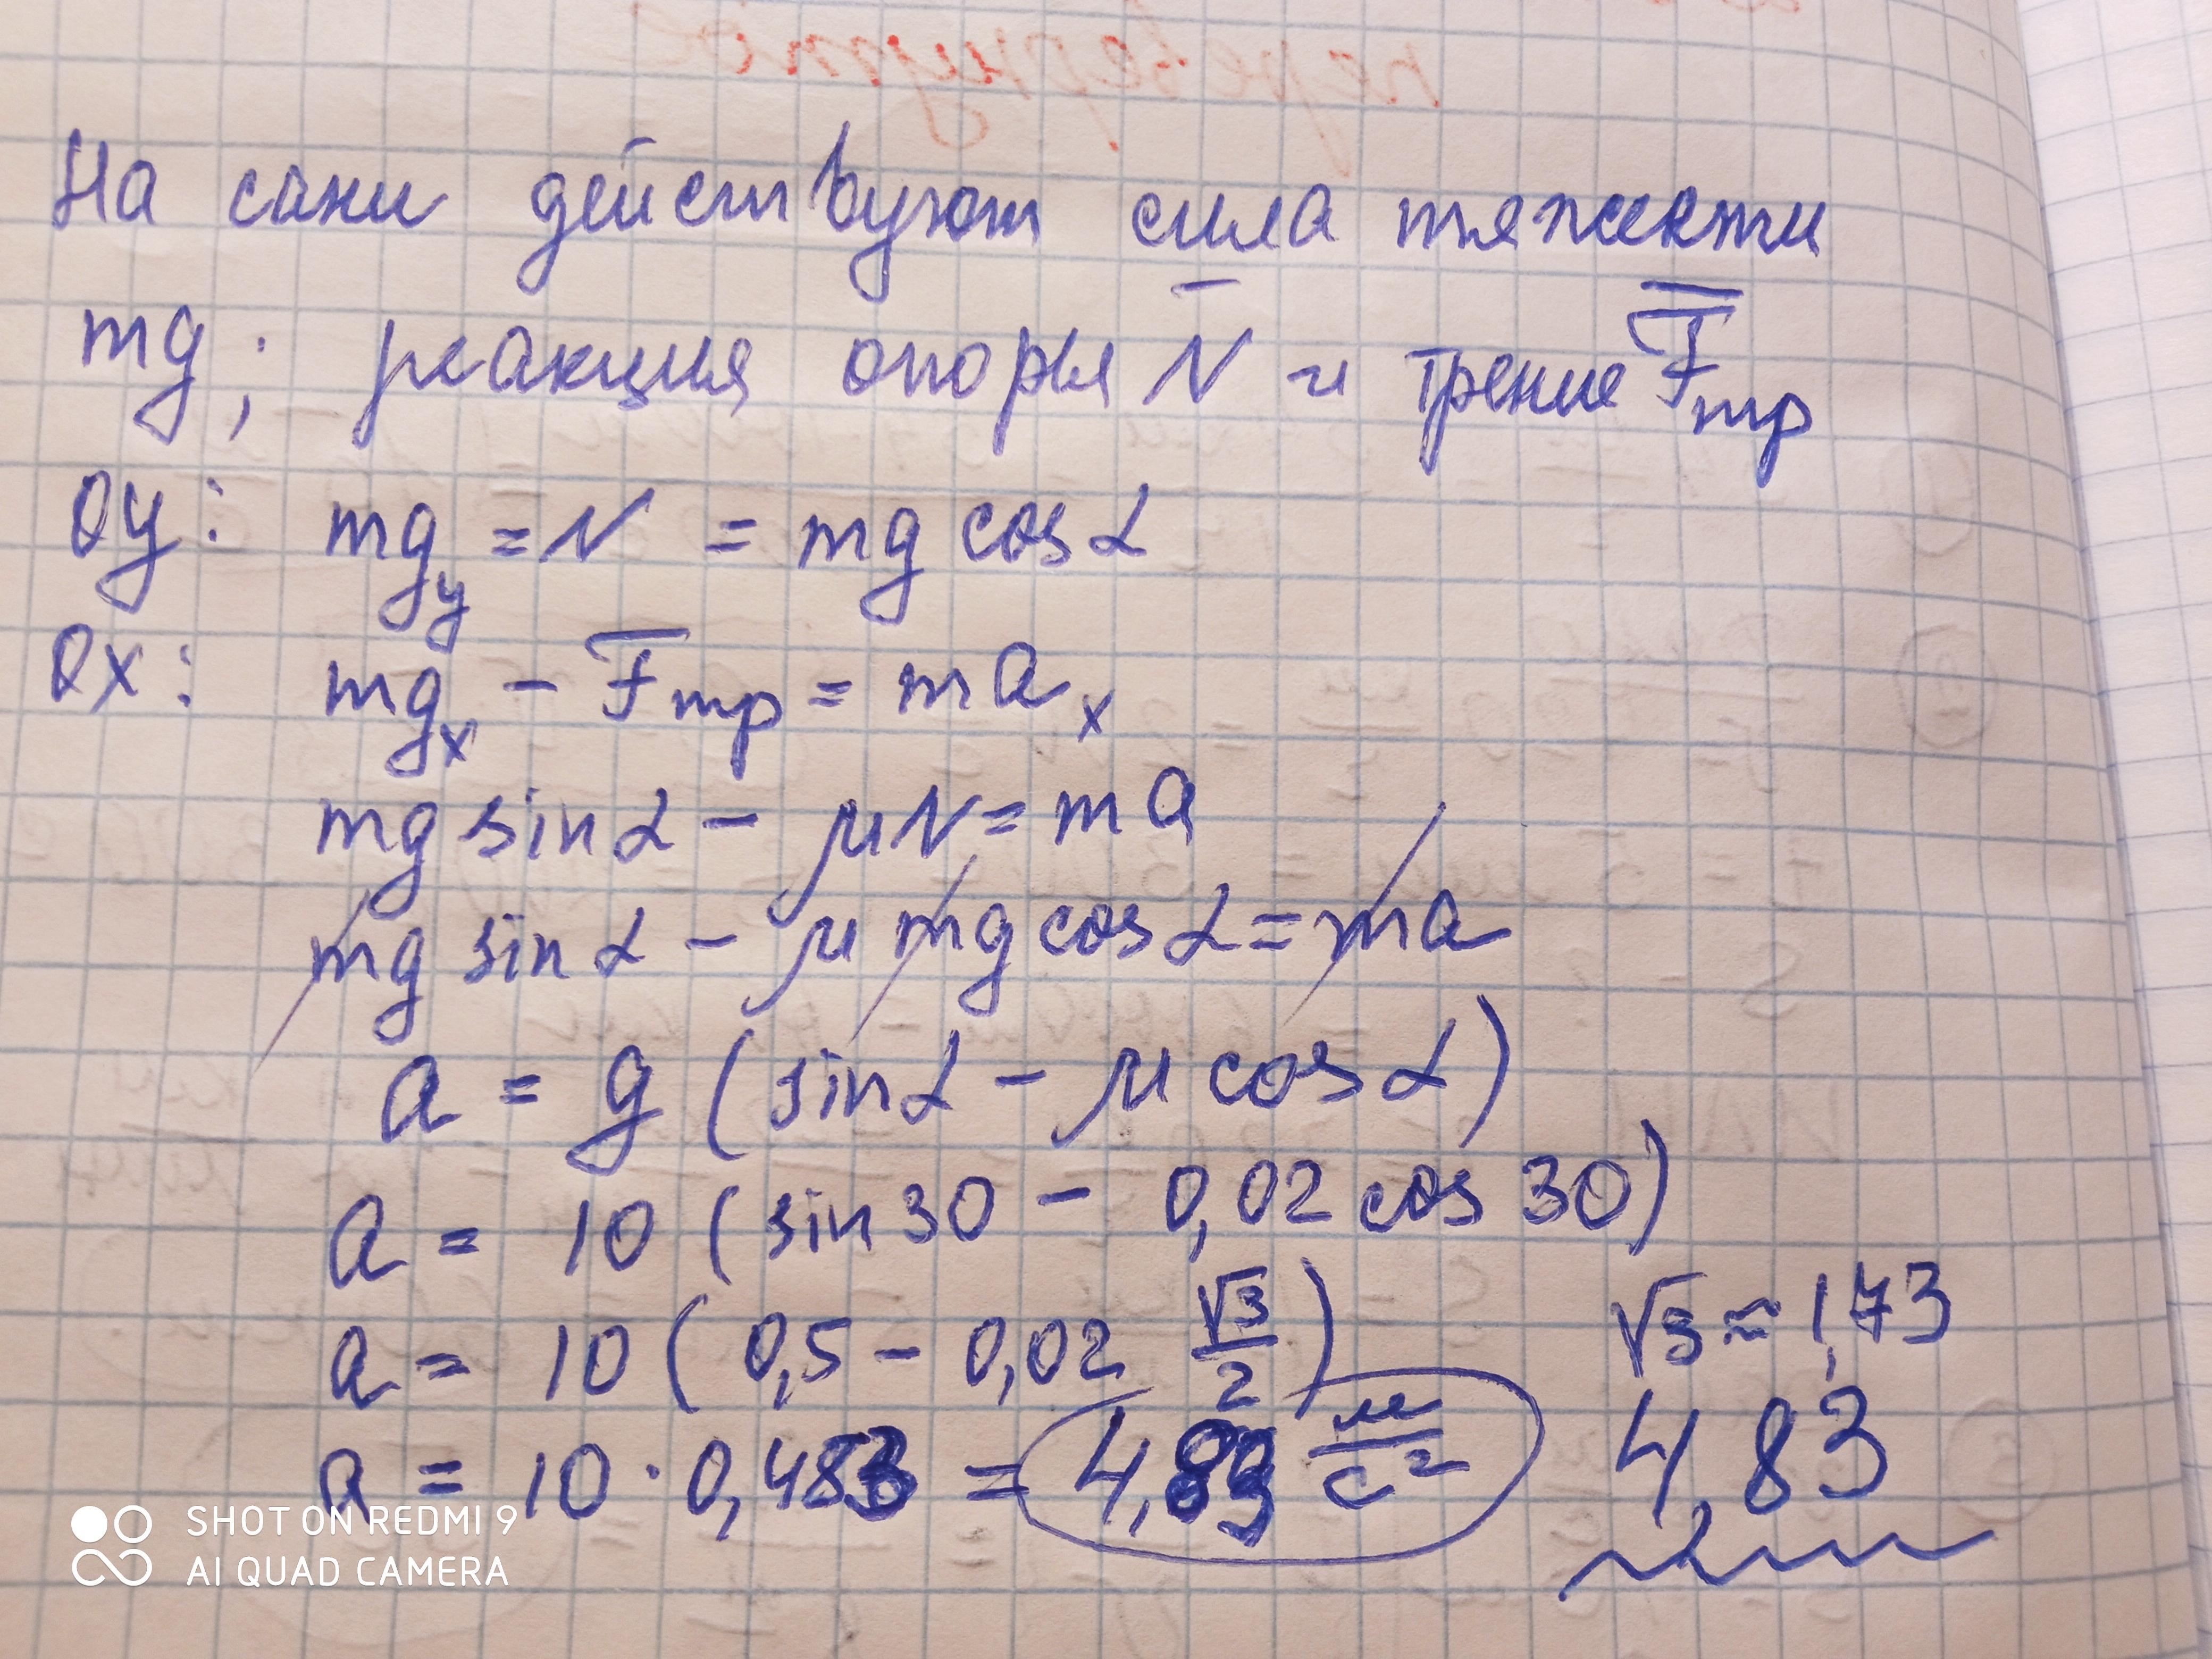 На сани действуют сила тяжести
mg; реакция опоры N̄ и трение F̄тр
OY: mgy = N = mg cos α
OX: mgx - Fтр = max
mg sin α - μN = ma
mg sin α - μ mg cos α = ma
a = g (sin α - μ cos α)
a = 10 (sin 30 - 0,02 cos 30)
a = 10 (0,5 - 0,02 √3/2) √3 ≈ 1,73
a = 10 · 0,483 = 4,83 м/с² 4,83
SHOT ON REDMI 9
AI QUAD CAMERA